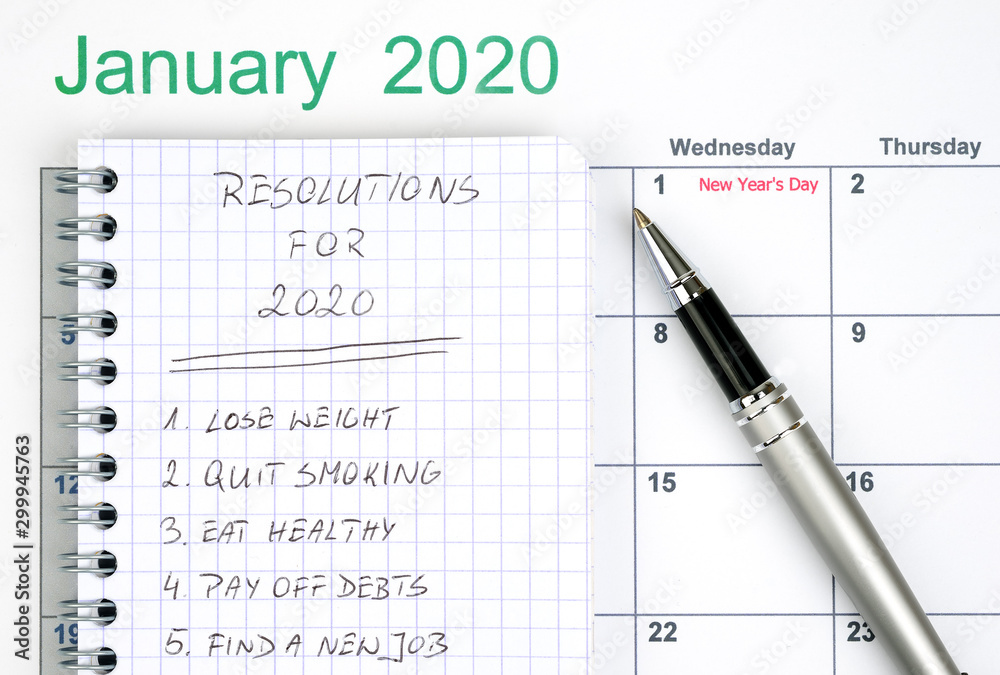 January 2020
RESOLUTIONS
FOR
2020
1. LOSE WEIGHT
2. QUIT SMOKING
3. EAT HEALTHY
4. PAY OFF DEBTS
5. FIND A NEW JOB
Wednesday Thursday
1 New Year's Day 2
5 8 9
12 15 16
19 22 23
Adobe Stock | #299945763